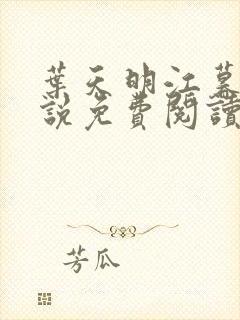 葉天明江慕
說免費閱讀
芳瓜